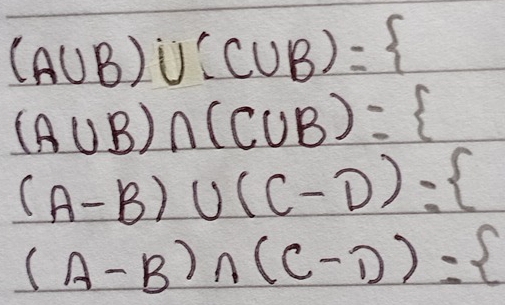 (A∪B) ∪ (C∪B) = {
(A∪B) ∩ (C∪B) = {
(A-B) ∪ (C-D) = {
(A-B) ∩ (C-D) = {